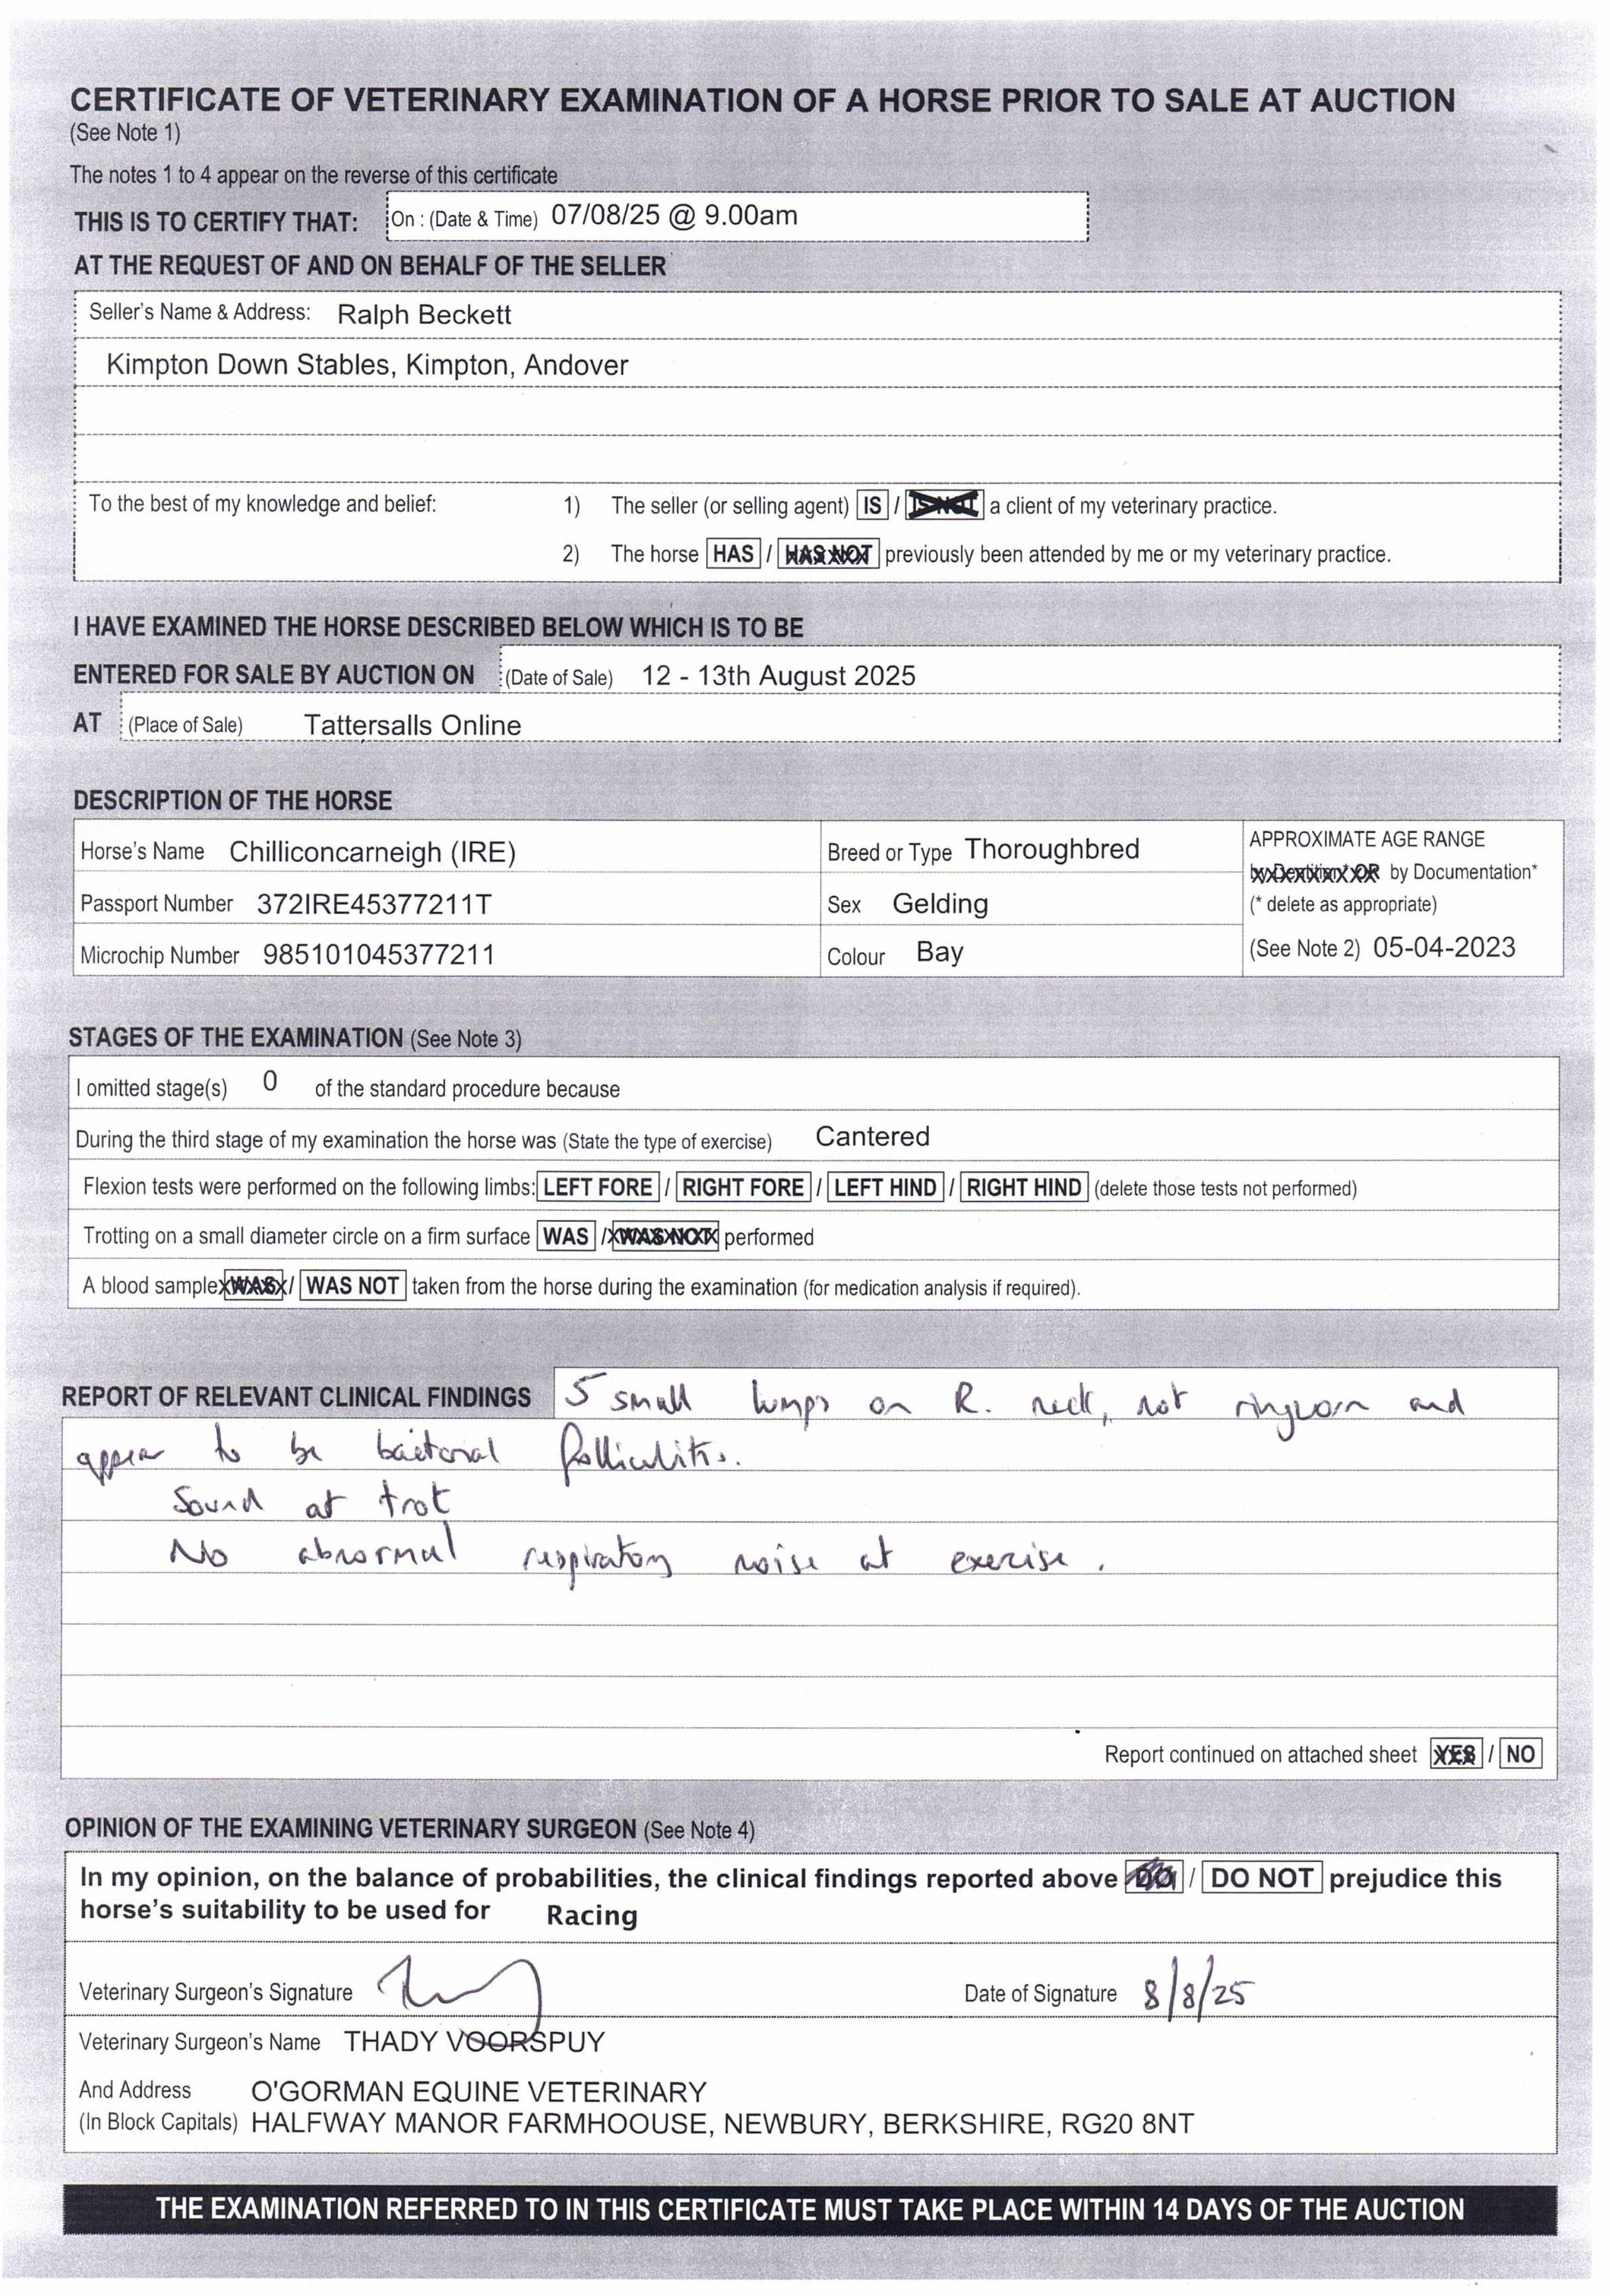 CERTIFICATE OF VETERINARY EXAMINATION OF A HORSE PRIOR TO SALE AT AUCTION
(See Note 1)
The notes 1 to 4 appear on the reverse of this certificate
THIS IS TO CERTIFY THAT: On : (Date & Time) 07/08/25 @ 9.00am
AT THE REQUEST OF AND ON BEHALF OF THE SELLER
Seller's Name & Address: Ralph Beckett
Kimpton Down Stables, Kimpton, Andover
To the best of my knowledge and belief: 1) The seller (or selling agent) IS / IS NOT a client of my veterinary practice.
2) The horse HAS / HAS NOT previously been attended by me or my veterinary practice.
I HAVE EXAMINED THE HORSE DESCRIBED BELOW WHICH IS TO BE
ENTERED FOR SALE BY AUCTION ON (Date of Sale) 12 - 13th August 2025
AT (Place of Sale) Tattersalls Online
DESCRIPTION OF THE HORSE
Horse's Name Chilliconcarneigh (IRE) Breed or Type Thoroughbred APPROXIMATE AGE RANGE
by Dentition* OR by Documentation*
Passport Number 372IRE45377211T Sex Gelding (* delete as appropriate)
Microchip Number 985101045377211 Colour Bay (See Note 2) 05-04-2023
STAGES OF THE EXAMINATION (See Note 3)
I omitted stage(s) 0 of the standard procedure because
During the third stage of my examination the horse was (State the type of exercise) Cantered
Flexion tests were performed on the following limbs: LEFT FORE / RIGHT FORE / LEFT HIND / RIGHT HIND (delete those tests not performed)
Trotting on a small diameter circle on a firm surface WAS / WAS NOT performed
A blood sample WAS / WAS NOT taken from the horse during the examination (for medication analysis if required).
REPORT OF RELEVANT CLINICAL FINDINGS 5 small lumps on R. neck, not ringworm and
appear to be bacterial folliculitis.
Sound at trot
No abnormal respiratory noise at exercise.
Report continued on attached sheet YES / NO
OPINION OF THE EXAMINING VETERINARY SURGEON (See Note 4)
In my opinion, on the balance of probabilities, the clinical findings reported above DO / DO NOT prejudice this
horse's suitability to be used for Racing
Veterinary Surgeon's Signature Date of Signature 8/8/25
Veterinary Surgeon's Name THADY VOORSPUY
And Address O'GORMAN EQUINE VETERINARY
(In Block Capitals) HALFWAY MANOR FARMHOOUSE, NEWBURY, BERKSHIRE, RG20 8NT
THE EXAMINATION REFERRED TO IN THIS CERTIFICATE MUST TAKE PLACE WITHIN 14 DAYS OF THE AUCTION